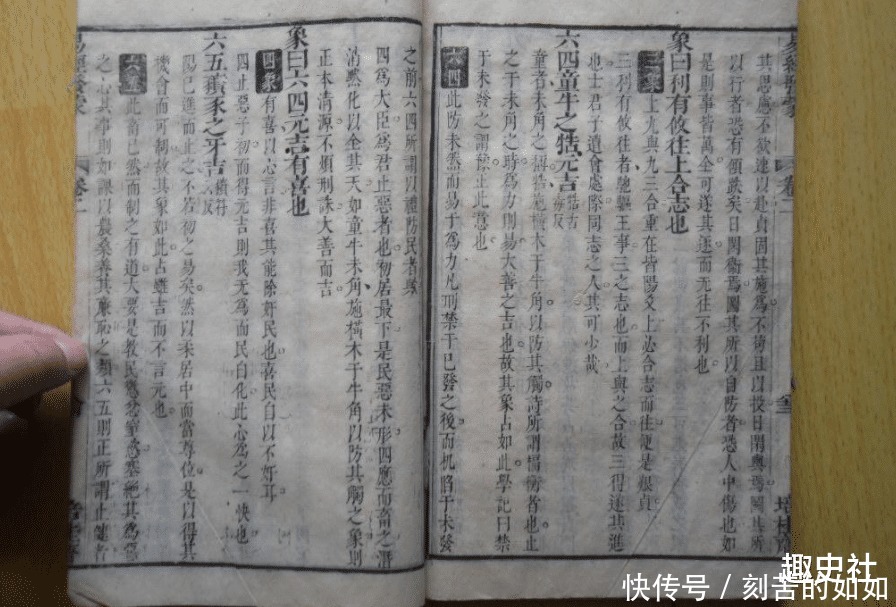 其思慮不欲速以赴貞固其施爲不苟且以投日閑輿爲閑其所
以行者恐有顛跌矣曰閑衛爲閑其所以自防者恐人中傷也如
是則事皆萬全可遂其進而无往不利也
象曰利有攸往上合志也
三象上九與九三合重在皆陽爻上必合志而往便是艱貞
三利有攸往者馳驅王事三之志也而上與之合故三得遂其進
也士君子遭會處際同志之人其可少哉
六四童牛之牿元吉
童者未角之稱牿施橫木于牛角以防其觸詩所謂楅衡者也止
之于未角之時爲力則易大善之吉也故其象占如此學記曰禁
于未發之謂豫正此意也
六四此防未然而易于爲力凡刑禁于已發之後而机䧟于未發
之前六四所謂以禮防民者與
四爲大臣爲君止惡者也初居最下是民惡未形四應而畜之潛
消默化以全其天如童牛未角施橫木于牛角以防其觸之象則
正本清源不煩刑誅大善而吉
象曰六四元吉有喜也
四象有喜以心言非喜其能除奸民也喜民自以不奸耳
四止惡于初而得元吉則我无爲而民自化此心爲之一快也
六五豶豕之牙吉
陽已進而止之不若初之易矣然以柔居中而當尊位是以得其
機會而可制故其象如此占雖吉而不言元也
六五此畜已然而制之有道大要是教民
之心其事則如課以農桑養其廉恥之類六五則正所謂止健者
易經
卷二
趣史社
快传号 / 刻苦的如如